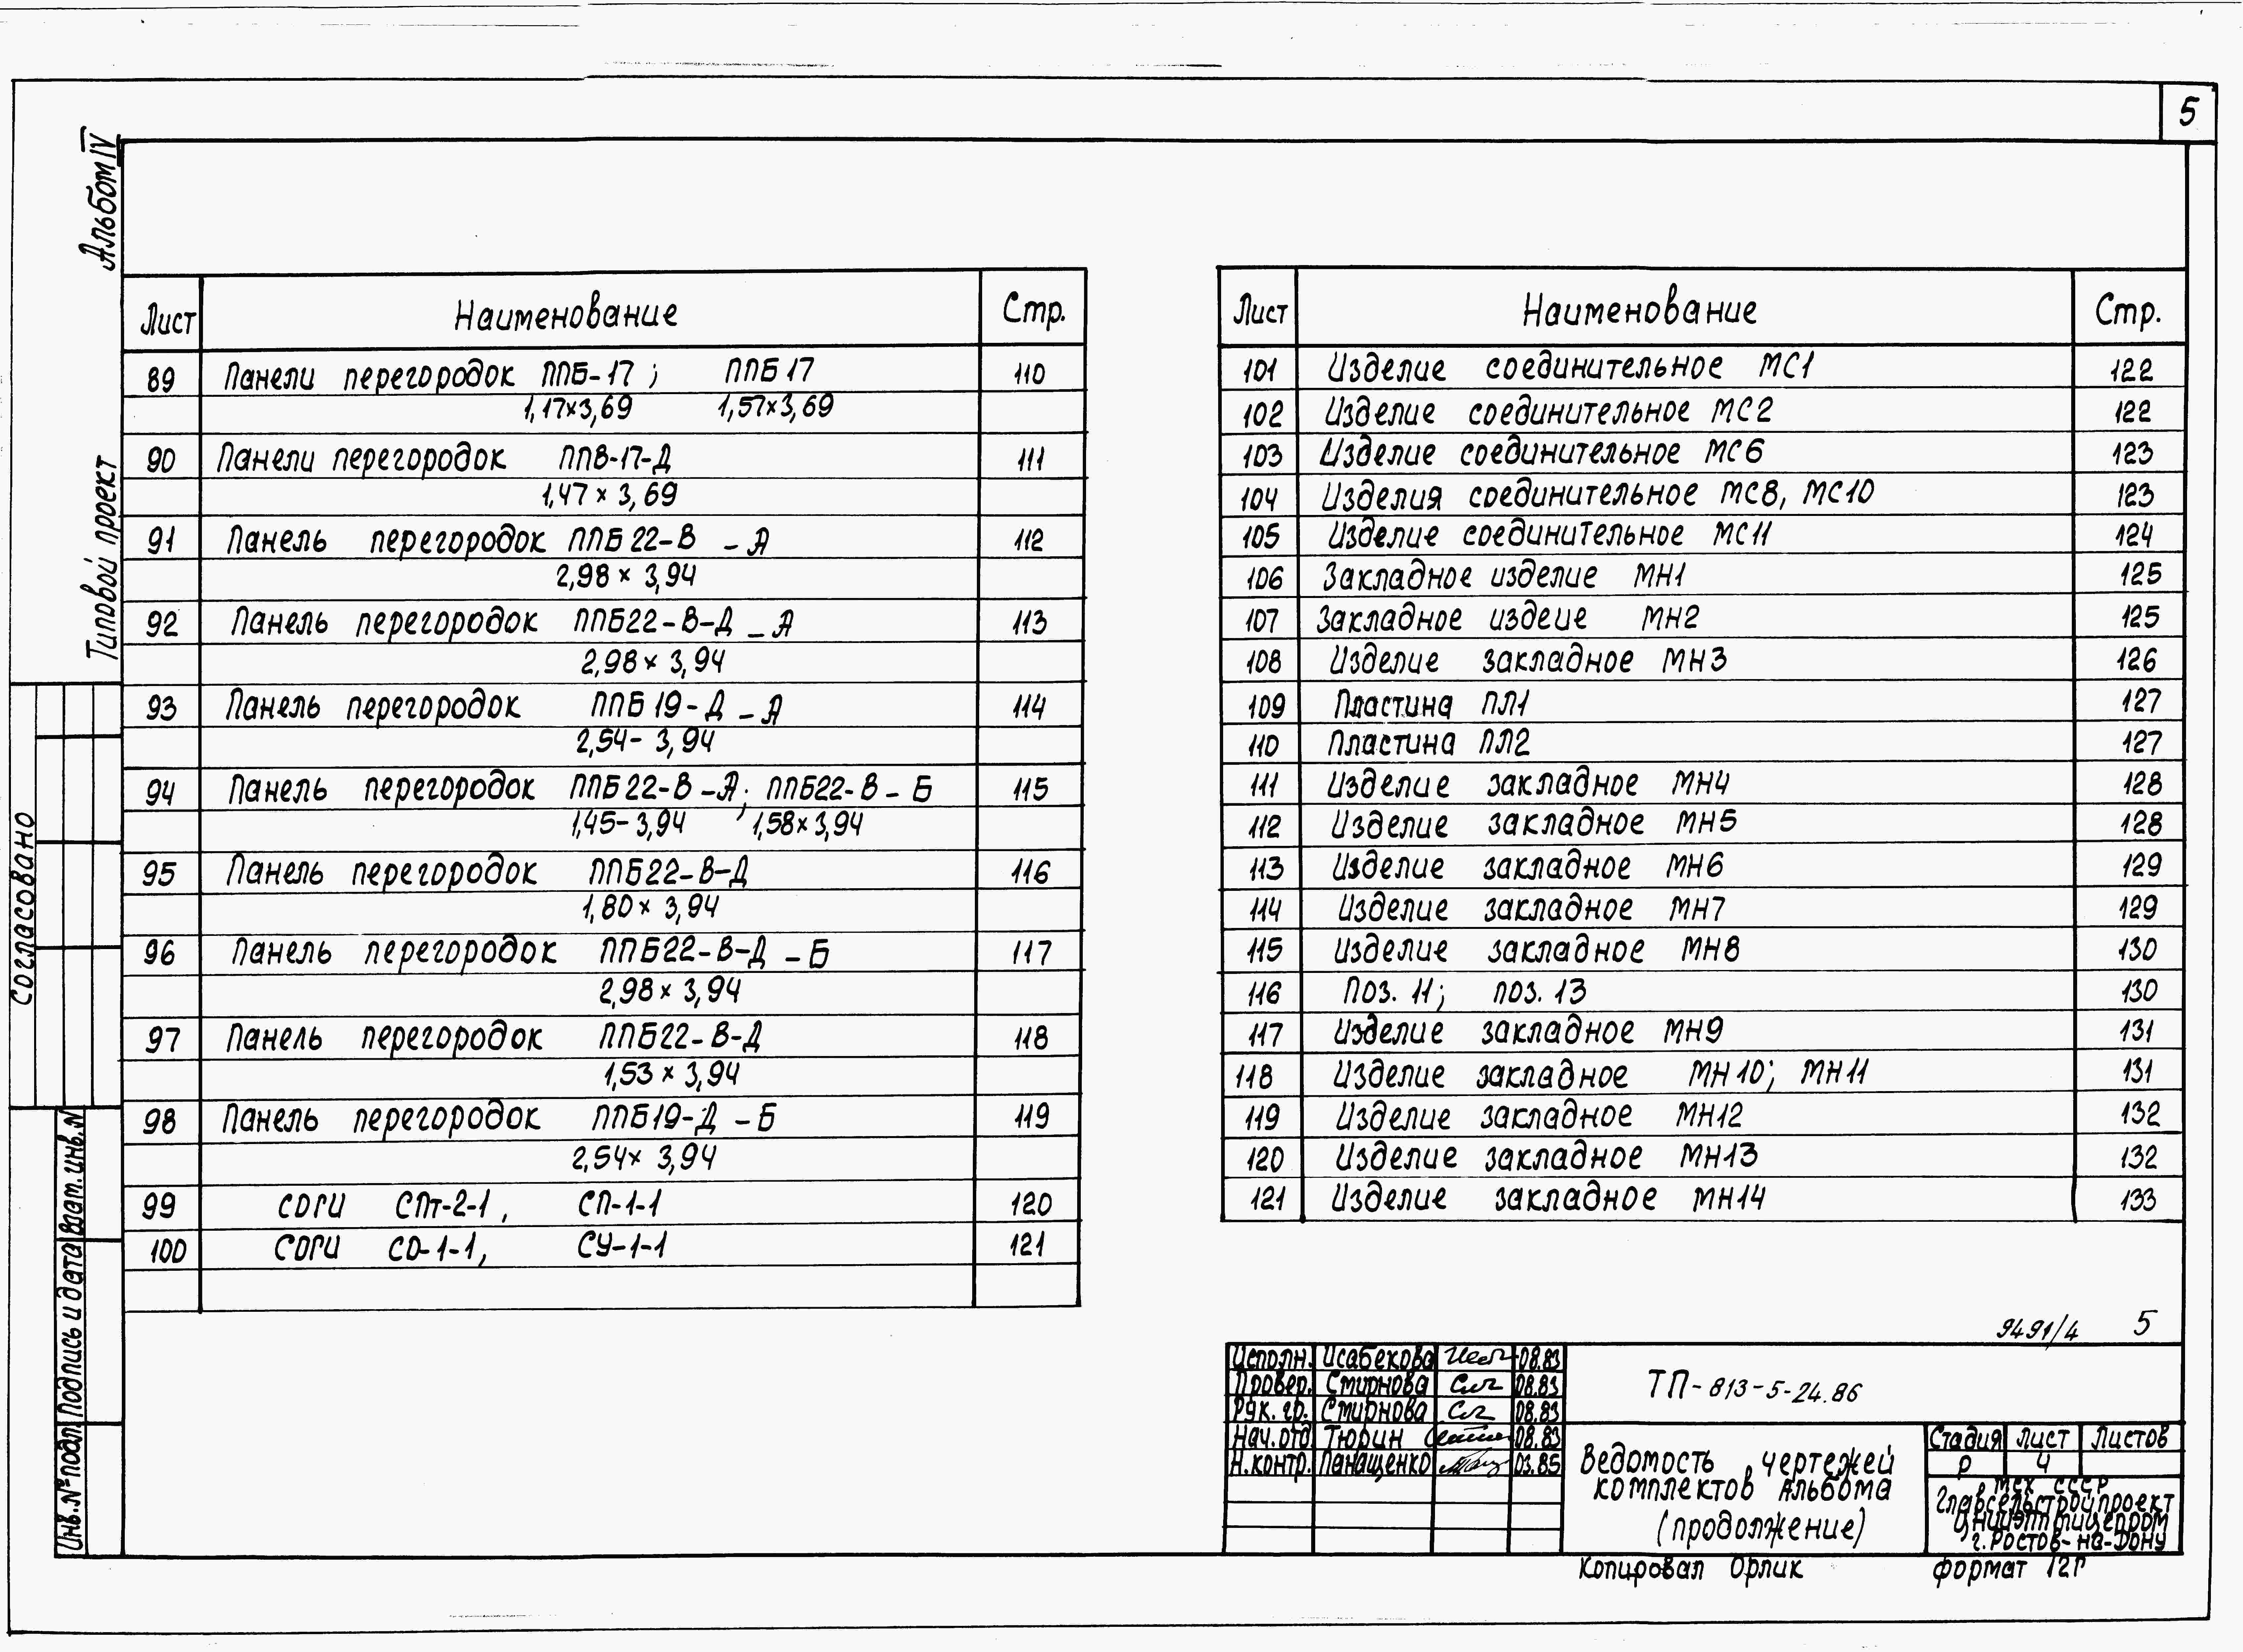 5
Альбом IV
Типовой проект
Согласовано
Взам.инв.N
Подпись и дата
Инв.№ подл.
Лист Наименование Стр.
89 Панели перегородок ППБ-17; ППБ17 110
1,17×3,69 1,57×3,69
90 Панели перегородок ППВ-17-Д 111
1,47 × 3,69
91 Панель перегородок ППБ22-В - А 112
2,98 × 3,94
92 Панель перегородок ППБ22-В-Д - А 113
2,98 × 3,94
93 Панель перегородок ППБ19-Д - А 114
2,54 - 3,94
94 Панель перегородок ППБ22-В-А; ППБ22-В-Б 115
1,45-3,94 1,58×3,94
95 Панель перегородок ППБ22-В-Д 116
1,80 × 3,94
96 Панель перегородок ППБ22-В-Д - Б 117
2,98 × 3,94
97 Панель перегородок ППБ22-В-Д 118
1,53 × 3,94
98 Панель перегородок ППБ19-Д - Б 119
2,54× 3,94
99 СОГИ СПт-2-1, СП-1-1 120
100 СОГИ СО-1-1, СУ-1-1 121
Лист Наименование Стр.
101 Изделие соединительное МС1 122
102 Изделие соединительное МС2 122
103 Изделие соединительное МС6 123
104 Изделия соединительное МС8, МС10 123
105 Изделие соединительное МС11 124
106 Закладное изделие МН1 125
107 Закладное издеие МН2 125
108 Изделие закладное МН3 126
109 Пластина ПЛ1 127
110 Пластина ПЛ2 127
111 Изделие закладное МН4 128
112 Изделие закладное МН5 128
113 Изделие закладное МН6 129
114 Изделие закладное МН7 129
115 Изделие закладное МН8 130
116 Поз. 11; поз. 13 130
117 Изделие закладное МН9 131
118 Изделие закладное МН10; МН11 131
119 Изделие закладное МН12 132
120 Изделие закладное МН13 132
121 Изделие закладное МН14 133
9491/4 5
Исполн. Исабекова 08.83
Провер. Смирнова 08.83
Рук. гр. Смирнова 08.83
Нач.отд Тюрин 08.83
Н.контр. Панащенко 03.85
ТП-813-5-24.86
Ведомость чертежей
комплектов Альбома
(продолжение)
Стадия Лист Листов
Р 4
МСХ СССР
Главсельстройпроект
ЦНИИЭПптицепром
г.Ростов-на-Дону
Копировал Орлик Формат 12Г